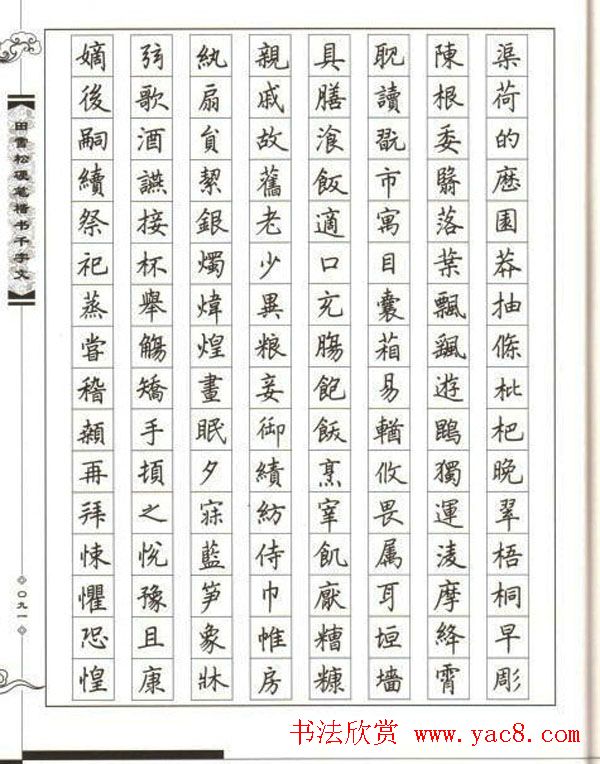 渠荷的歷園莽抽條枇杷晚翠梧桐早彫
陳根委翳落葉飄颻遊鵾獨運凌摩絳霄
耽讀翫市寓目囊箱易輶攸畏属耳垣墻
具膳飡飯適口充腸飽飫烹宰飢厭糟糠
親戚故舊老少異粮妾御績紡侍巾帷房
紈扇員絜銀燭煒煌晝眠夕寐藍笋象牀
弦歌酒讌接杯舉觴矯手頓之悅豫且康
嫡後嗣續祭祀蒸嘗稽顙再拜悚懼恐惶
田雪松硬笔楷书千字文
〇九一
书法欣赏 www.yac8.com